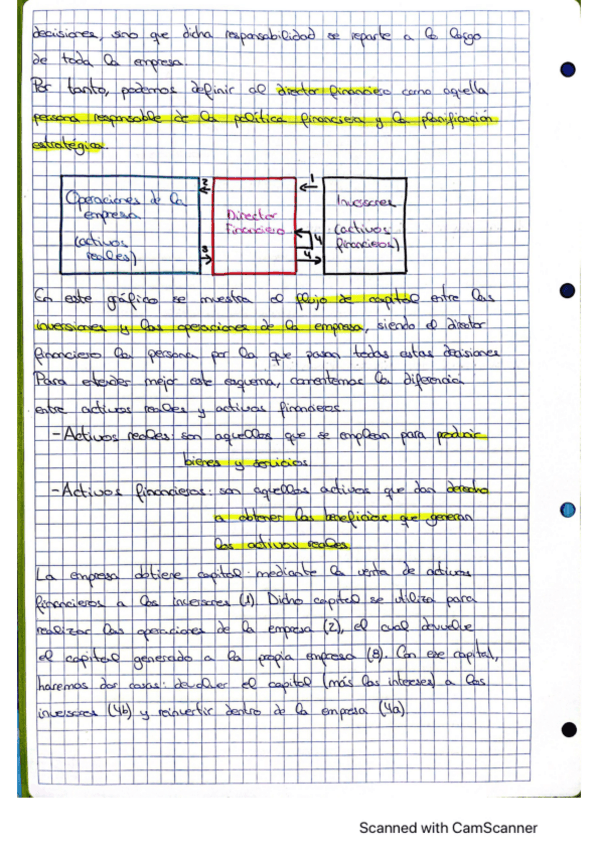 decisiones, sino que dicha responsabilidad se reparte a lo largo
de toda la empresa.
Por tanto, podemos definir al director financiero como aquella
persona responsable de la política financiera y la planificación
estratégica.
Operaciones de la
empresa
(activos
reales)
2
3
Director
financiero
1
4
4
Inversores
(activos
financieros)
En este gráfico se muestra el flujo de capital entre las
inversiones y las operaciones de la empresa, siendo el director
financiero la persona por la que pasan todas estas decisiones
Para entender mejor este esquema, comentemos la diferencia
entre activos reales y activos financieros.
- Activos reales: son aquellos que se emplean para producir
bienes y servicios
- Activos financieros: son aquellos activos que dan derecho
a obtener los beneficios que generan
los activos reales.
La empresa obtiene capital mediante la venta de activos
financieros a los inversores (1). Dicho capital se utiliza para
realizar las operaciones de la empresa (2), el cual devuelve
el capital generado a la propia empresa (3). Con ese capital,
haremos dos cosas: devolver el capital (más los intereses) a los
inversores (4b) y reinvertir dentro de la empresa (4a).
Scanned with CamScanner